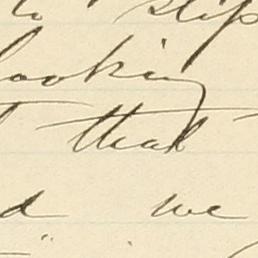 to slip
looking
that
d we